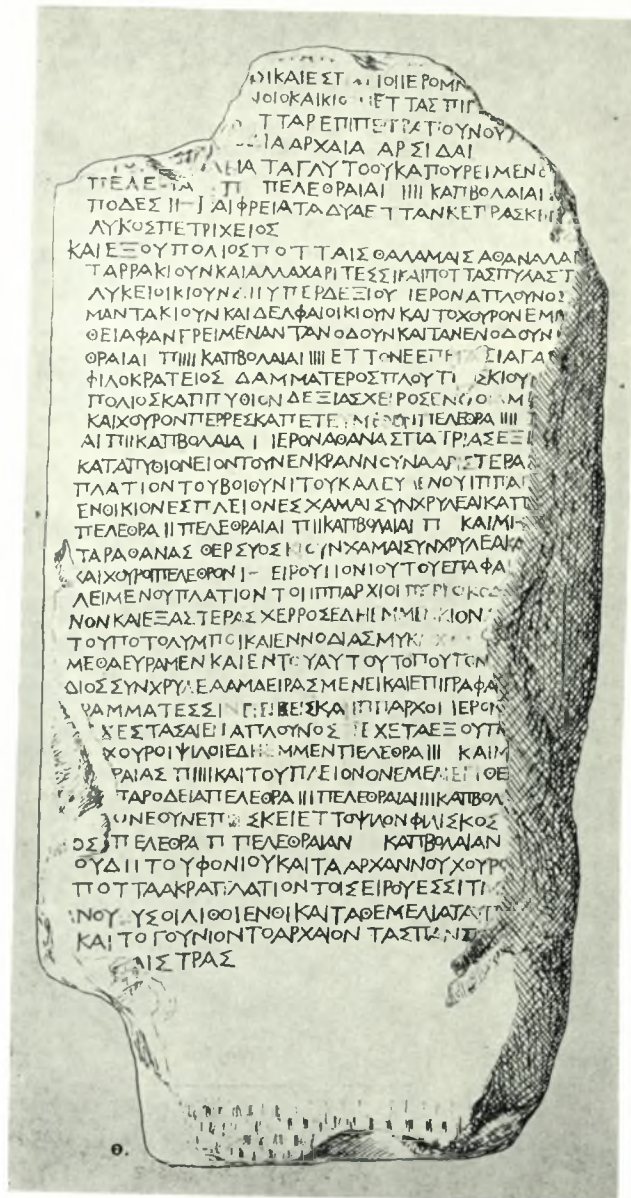 ΟΙΚΑΙΕΣΤ ΟΙΙΕΡΟΜΝ
ΝΟΙΟΚΑΙΚΙΟ ΕΤΤΑΣΠΙΓ
ΤΤΑΡΕΠΙΠΕΤΡΑΤΙΟΥΝΟΥ
ΙΑΑΡΧΑΙΑ ΑΡΣΙΔΑΙ
ΕΙΑΤΑΓΛΥΤΟΟΥΚΑΠΟΥΡΕΙΜΕΝ
ΠΕΛΕ ΠΕΛΕΘΡΑΙΑΙ ΙΙΙΙ ΚΑΠΒΟΛΑΙΑΙ
ΠΟΔΕΣ ΑΙΦΡΕΙΑΤΑΔΥΑΕΤΤΑΝΚΕΠΡΑΣΚ
ΛΥΚΟΣΠΕΤΡΙΧΕΙΟΣ
ΚΑΙΕΞΟΥΠΟΛΙΟΣΠΟΤΤΑΙΣΘΑΛΑΜΑΙΣΑΘΑΝΑΛΑΓ
ΤΑΡΡΑΚΙΟΥΝΚΑΙΑΛΛΑΧΑΡΙΤΕΣΣΙΚΑΙΠΟΤΤΑΣΠΥΛΑΣΤ
ΛΥΚΕΙΟΙΚΙΟΥΝ ΥΠΕΡΔΕΞΙΟΥ ΙΕΡΟΝΑΠΛΟΥΝΟΣ
ΜΑΝΤΑΚΙΟΥΝΚΑΙΔΕΛΦΑΙΟΙΚΙΟΥΝΚΑΙΤΟΧΟΥΡΟΝΕΜΠ
ΘΕΙΑΦΑΝΓΡΕΙΜΕΝΑΝΤΑΝΟΔΟΥΝΚΑΙΤΑΝΕΝΟΔΟΥΝ
ΘΡΑΙΑΙ ΠΙΙΙΙ ΚΑΠΒΟΛΑΙΑΙ ΙΙΙΙ ΕΤΤΟΝΕΕΠ ΣΙΑΓΑ
ΦΙΛΟΚΡΑΤΕΙΟΣ ΔΑΜΜΑΤΕΡΟΣΠΛΟΥΤ ΣΚΙΟΥ
ΠΟΛΙΟΣΚΑΠΠΥΘΙΟΝΔΕΞΙΑΣΧΕΙΡΟΣΕΝ
ΚΑΙΧΟΥΡΟΝΠΕΡΡΕΣΚΑΠΕΤΕ ΠΕΛΕΘΡΑ ΙΙΙΙ
ΑΙΠΙΙΚΑΠΒΟΛΑΙΑ Ι ΙΕΡΟΝΑΘΑΝΑΣΠΑΤΡΙΑΣΕΞΙ
ΚΑΤΑΠΥΘΙΟΝΕΙΟΝΤΟΥΝΕΝΚΡΑΝΝΟΥΝΑΑΡΙΣΤΕΡΑΣ
ΠΛΑΤΙΟΝΤΟΥΒΟΙΘΥΝΙΤΟΥΚΑΛΕΥ ΕΝΟΥΙΠΠΑΙ
ΕΝΘΙΚΙΟΝΕΣΠΛΕΙΟΝΕΣΧΑΜΑΙΣΥΝΧΡΥΛΕΑΙΚΑΤΤ
ΠΕΛΕΘΡΑ ΙΙ ΠΕΛΕΘΡΑΙΑΙ ΠΙΙΚΑΠΒΟΛΑΙΑΙ Π ΚΑΙΜΙ
ΤΑΡΑΘΑΝΑΣ ΘΕΡΣΥΟΣ ΚΙΟΥΝΧΑΜΑΙΣΥΝΧΡΥΛΕΑΙΚΑ
ΚΑΙΧΟΥΡΟΠΕΛΕΘΡΟΝ Ι ΕΙΡΟΥΙΙΟΝΙΟΥΤΟΥΕΠΑΦΑ
ΛΕΙΜΕΝΟΥΠΛΑΤΙΟΝ ΤΟΙΙΠΠΑΡΧΙΟΙΠΕΡΙΟΚΟΔ
ΝΟΝΚΑΙΕΞΑΣΤΕΡΑΣΧΕΡΡΟΣΕΔΗΕΜΜΕΝΚΙΟΝ
ΤΟΥΠΟΤΟΛΥΜΠΟΙΚΑΙΕΝΝΟΔΙΑΣΜΥΚ
ΜΕΘΑΕΥΡΑΜΕΝΚΑΙΕΝΤΟΥΑΥΤΟΥΤΟΠΟΥΤΟΝ
ΔΙΟΣΣΥΝΧΡΥΛΕΑΑΜΑΕΙΡΑΣΜΕΝΕΙΚΑΙΕΠΙΓΡΑΦΑ
ΡΑΜΜΑΤΕΣΣΙ ΚΑΙΠΠΑΡΧΟΙ ΙΕΡΟΝ
ΧΕΣΤΑΣΑΙΕΙΑΠΛΟΥΝΟΣ ΕΧΕΤΑΕΞΟΥΤΑ
ΧΟΥΡΟΙΨΙΛΟΙΕΔΗΕΜΜΕΝΠΕΛΕΘΡΑ ΙΙΙ ΚΑΙΜ
ΡΑΙΑΣ ΠΙΙΙΙΚΑΙΤΟΥΠΛΕΙΟΝΟΝΕΜΕ ΘΕ
ΤΑΡΟΔΕΙΑΠΕΛΕΘΡΑ ΙΙΙ ΠΕΛΕΘΡΑΙΑΙΙΙΙΙΚΑΠΒΟΛ
ΟΝΕΟΥΝΕΠ ΣΚΕΙΕΤΤΟΨΙΛΟΝΦΙΛΙΣΚΟΣ
ΟΣ ΠΕΛΕΘΡΑ Π ΠΕΛΕΘΡΑΙΑΝ ΚΑΠΒΟΛΑΙΑΝ
ΟΥΔΙΙΤΟΥΦΟΝΙΟΥΚΑΙΤΑΑΡΧΑΝΝΟΥΧΟΥΡΟ
ΠΟΤΤΑΑΚΡΑΠΛΑΤΙΟΝΤΟΙΣΕΙΡΟΥΕΣΣΙΤ
ΝΟΥ ΥΣΟΙΛΙΘΟΙΕΝΘΙΚΑΙΤΑΘΕΜΕΛΙΑΤΑ
ΚΑΙΤΟΓΟΥΝΙΟΝΤΟΑΡΧΑΙΟΝ ΤΑΣΠΑΝΣ
ΑΙΣΤΡΑΣ
Θ.